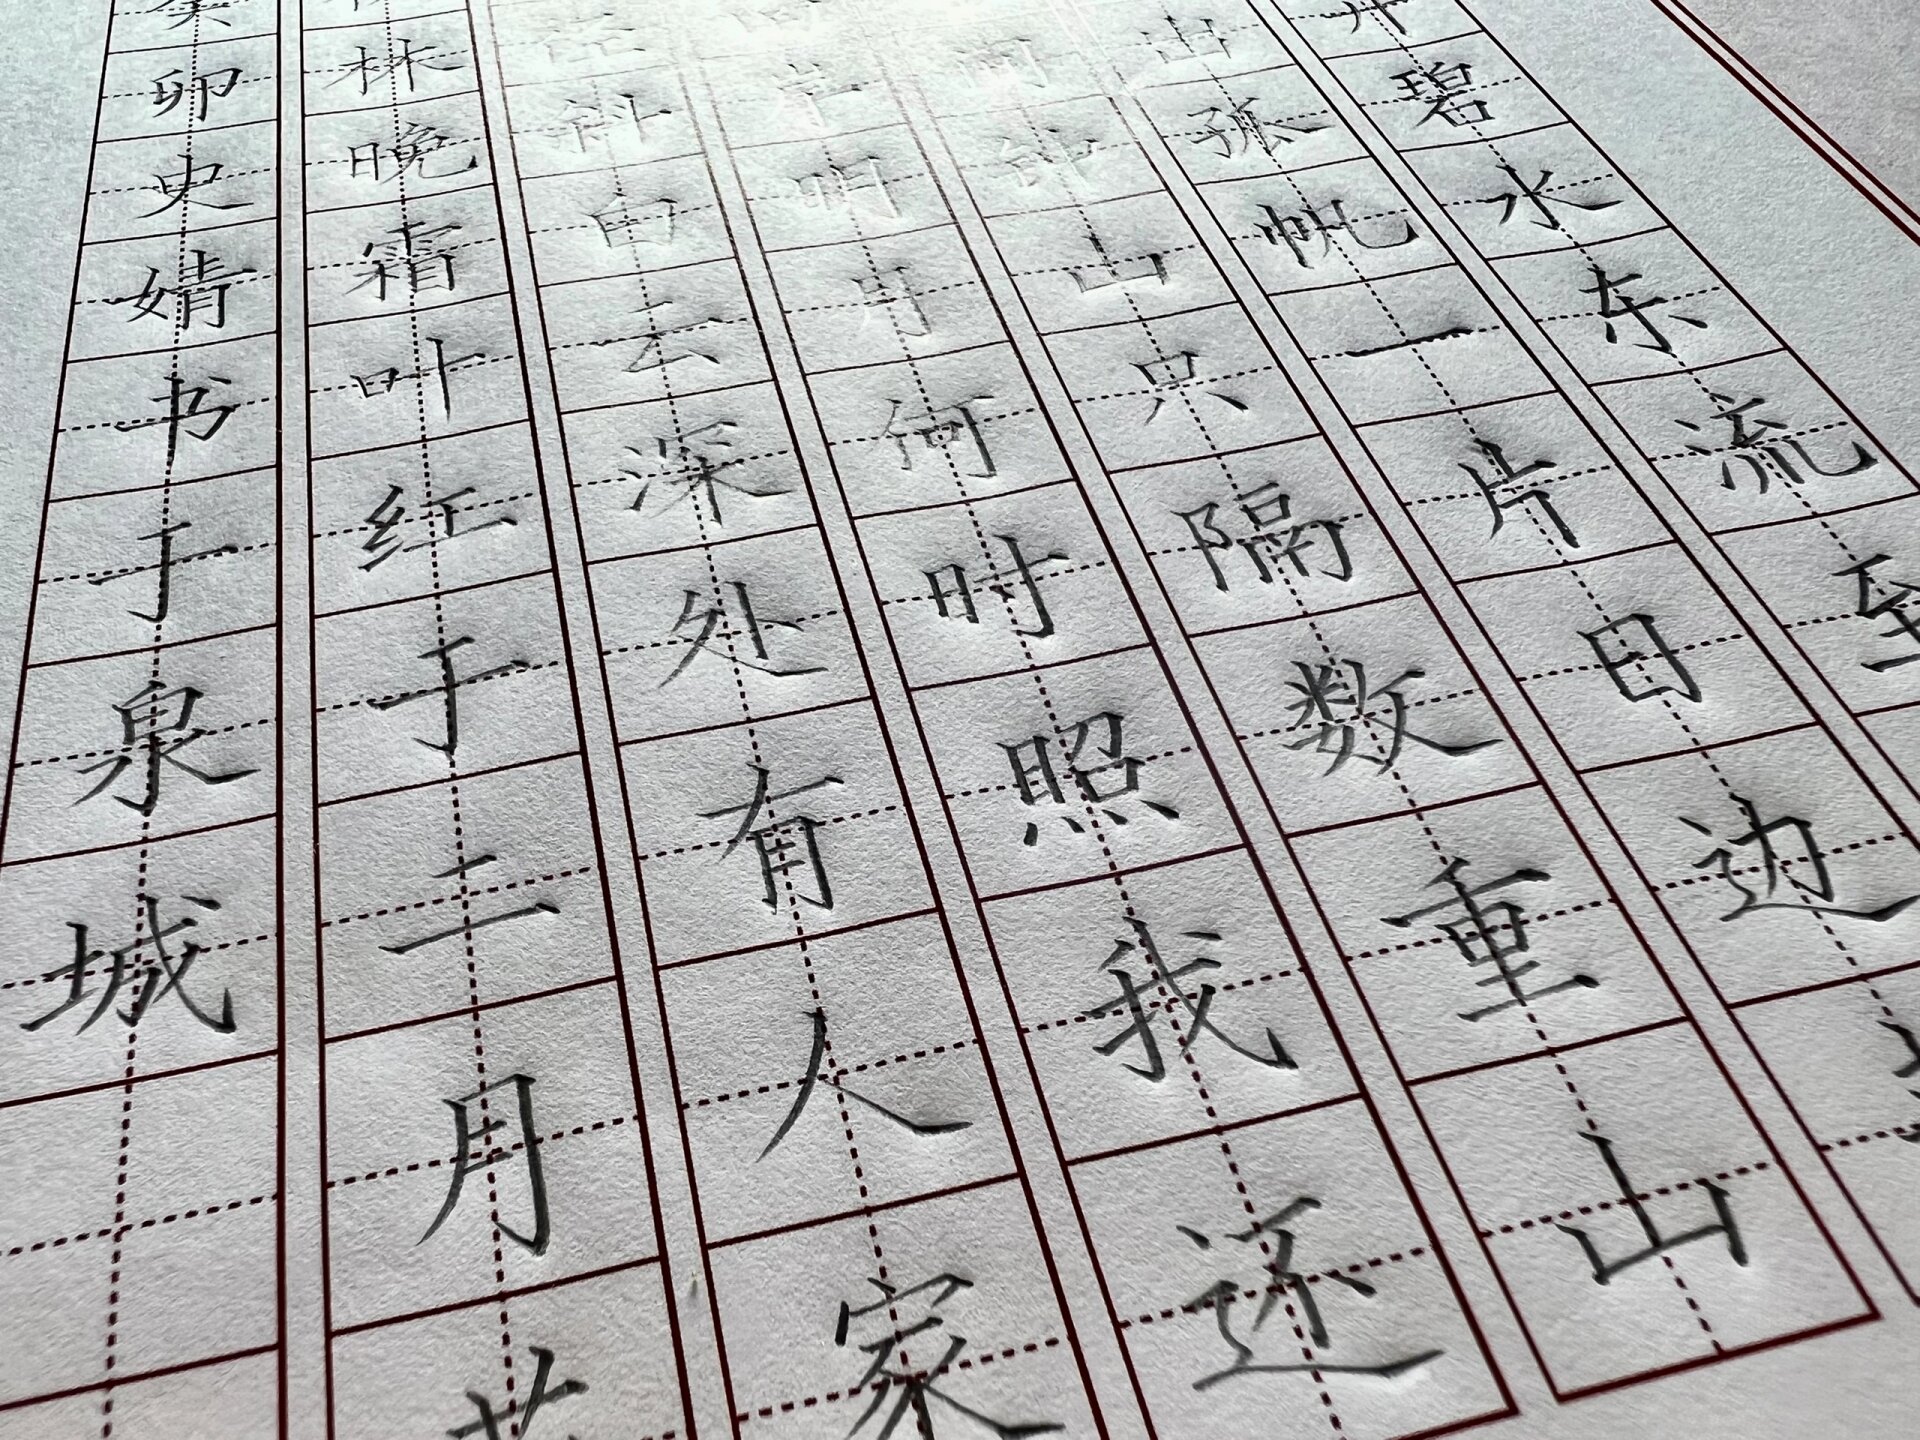 开碧水东流至
出孤帆一片日边
间钟山只隔数重山
岸明月何时照我还
径斜白云深处有人家
林晚霜叶红于二月花
癸卯史婧书于泉城